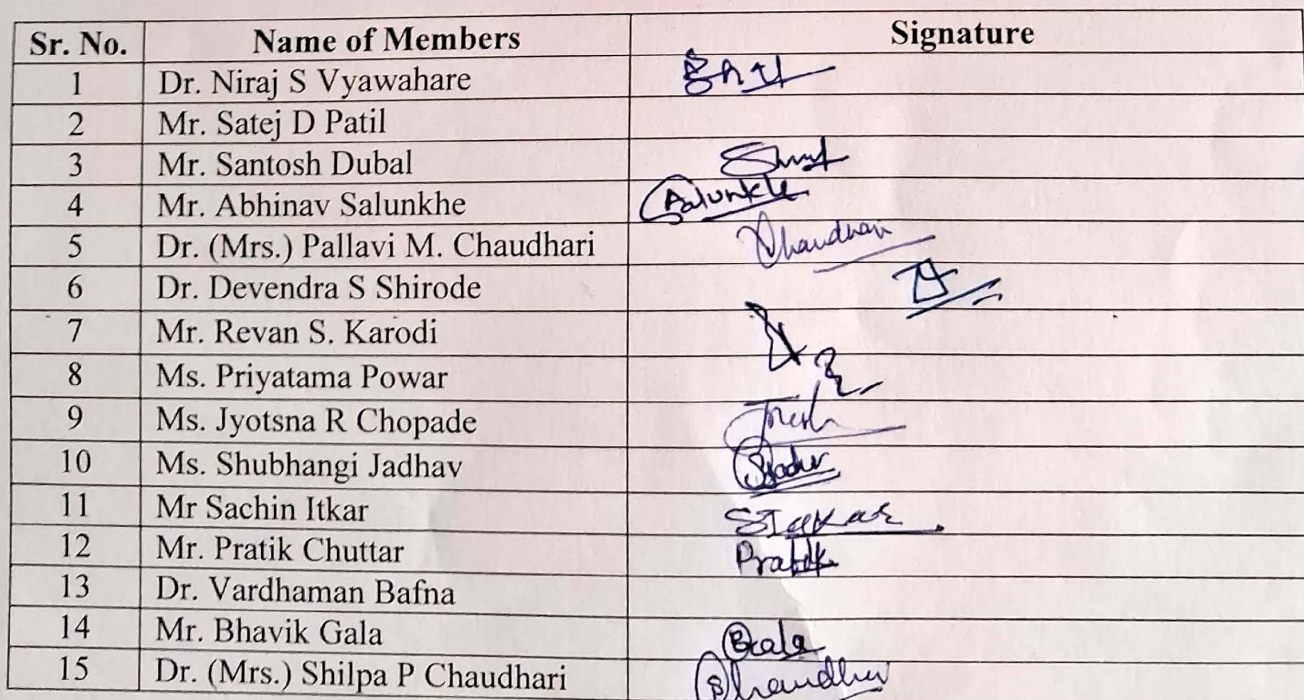 Sr. No. Name of Members Signature
1 Dr. Niraj S Vyawahare
2 Mr. Satej D Patil
3 Mr. Santosh Dubal
4 Mr. Abhinav Salunkhe Salunkhe
5 Dr. (Mrs.) Pallavi M. Chaudhari Chaudhari
6 Dr. Devendra S Shirode
7 Mr. Revan S. Karodi
8 Ms. Priyatama Powar
9 Ms. Jyotsna R Chopade
10 Ms. Shubhangi Jadhav
11 Mr Sachin Itkar
12 Mr. Pratik Chuttar Pratik
13 Dr. Vardhaman Bafna
14 Mr. Bhavik Gala
15 Dr. (Mrs.) Shilpa P Chaudhari